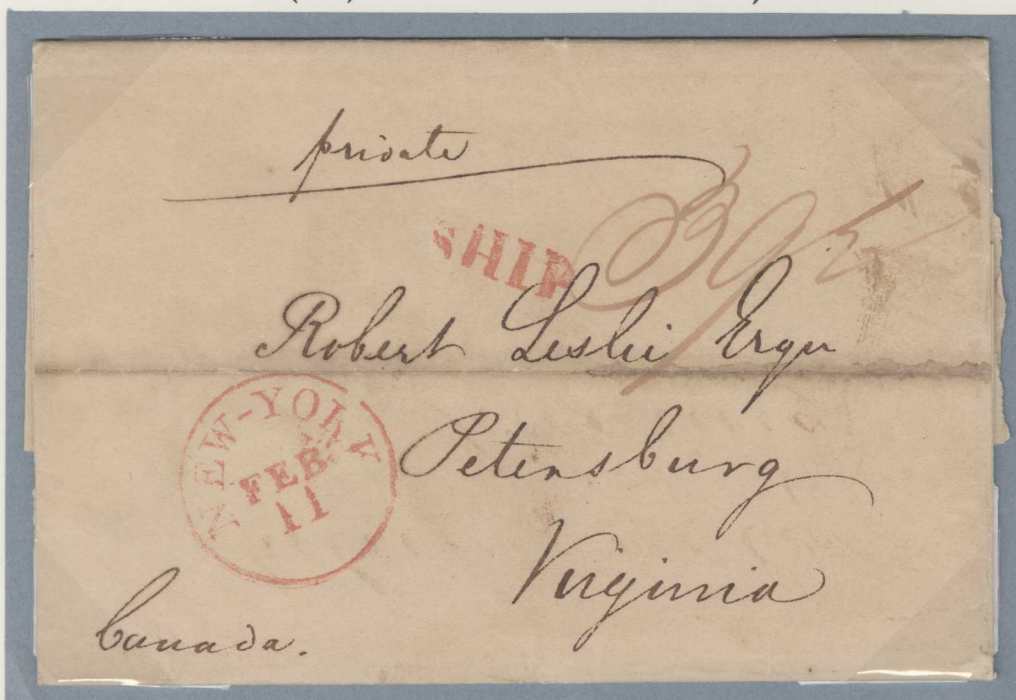 private
SHIP
Robert Leslie Esqr
Petersburg
Virginia
NEW-YORK
FEB
11
Canada.